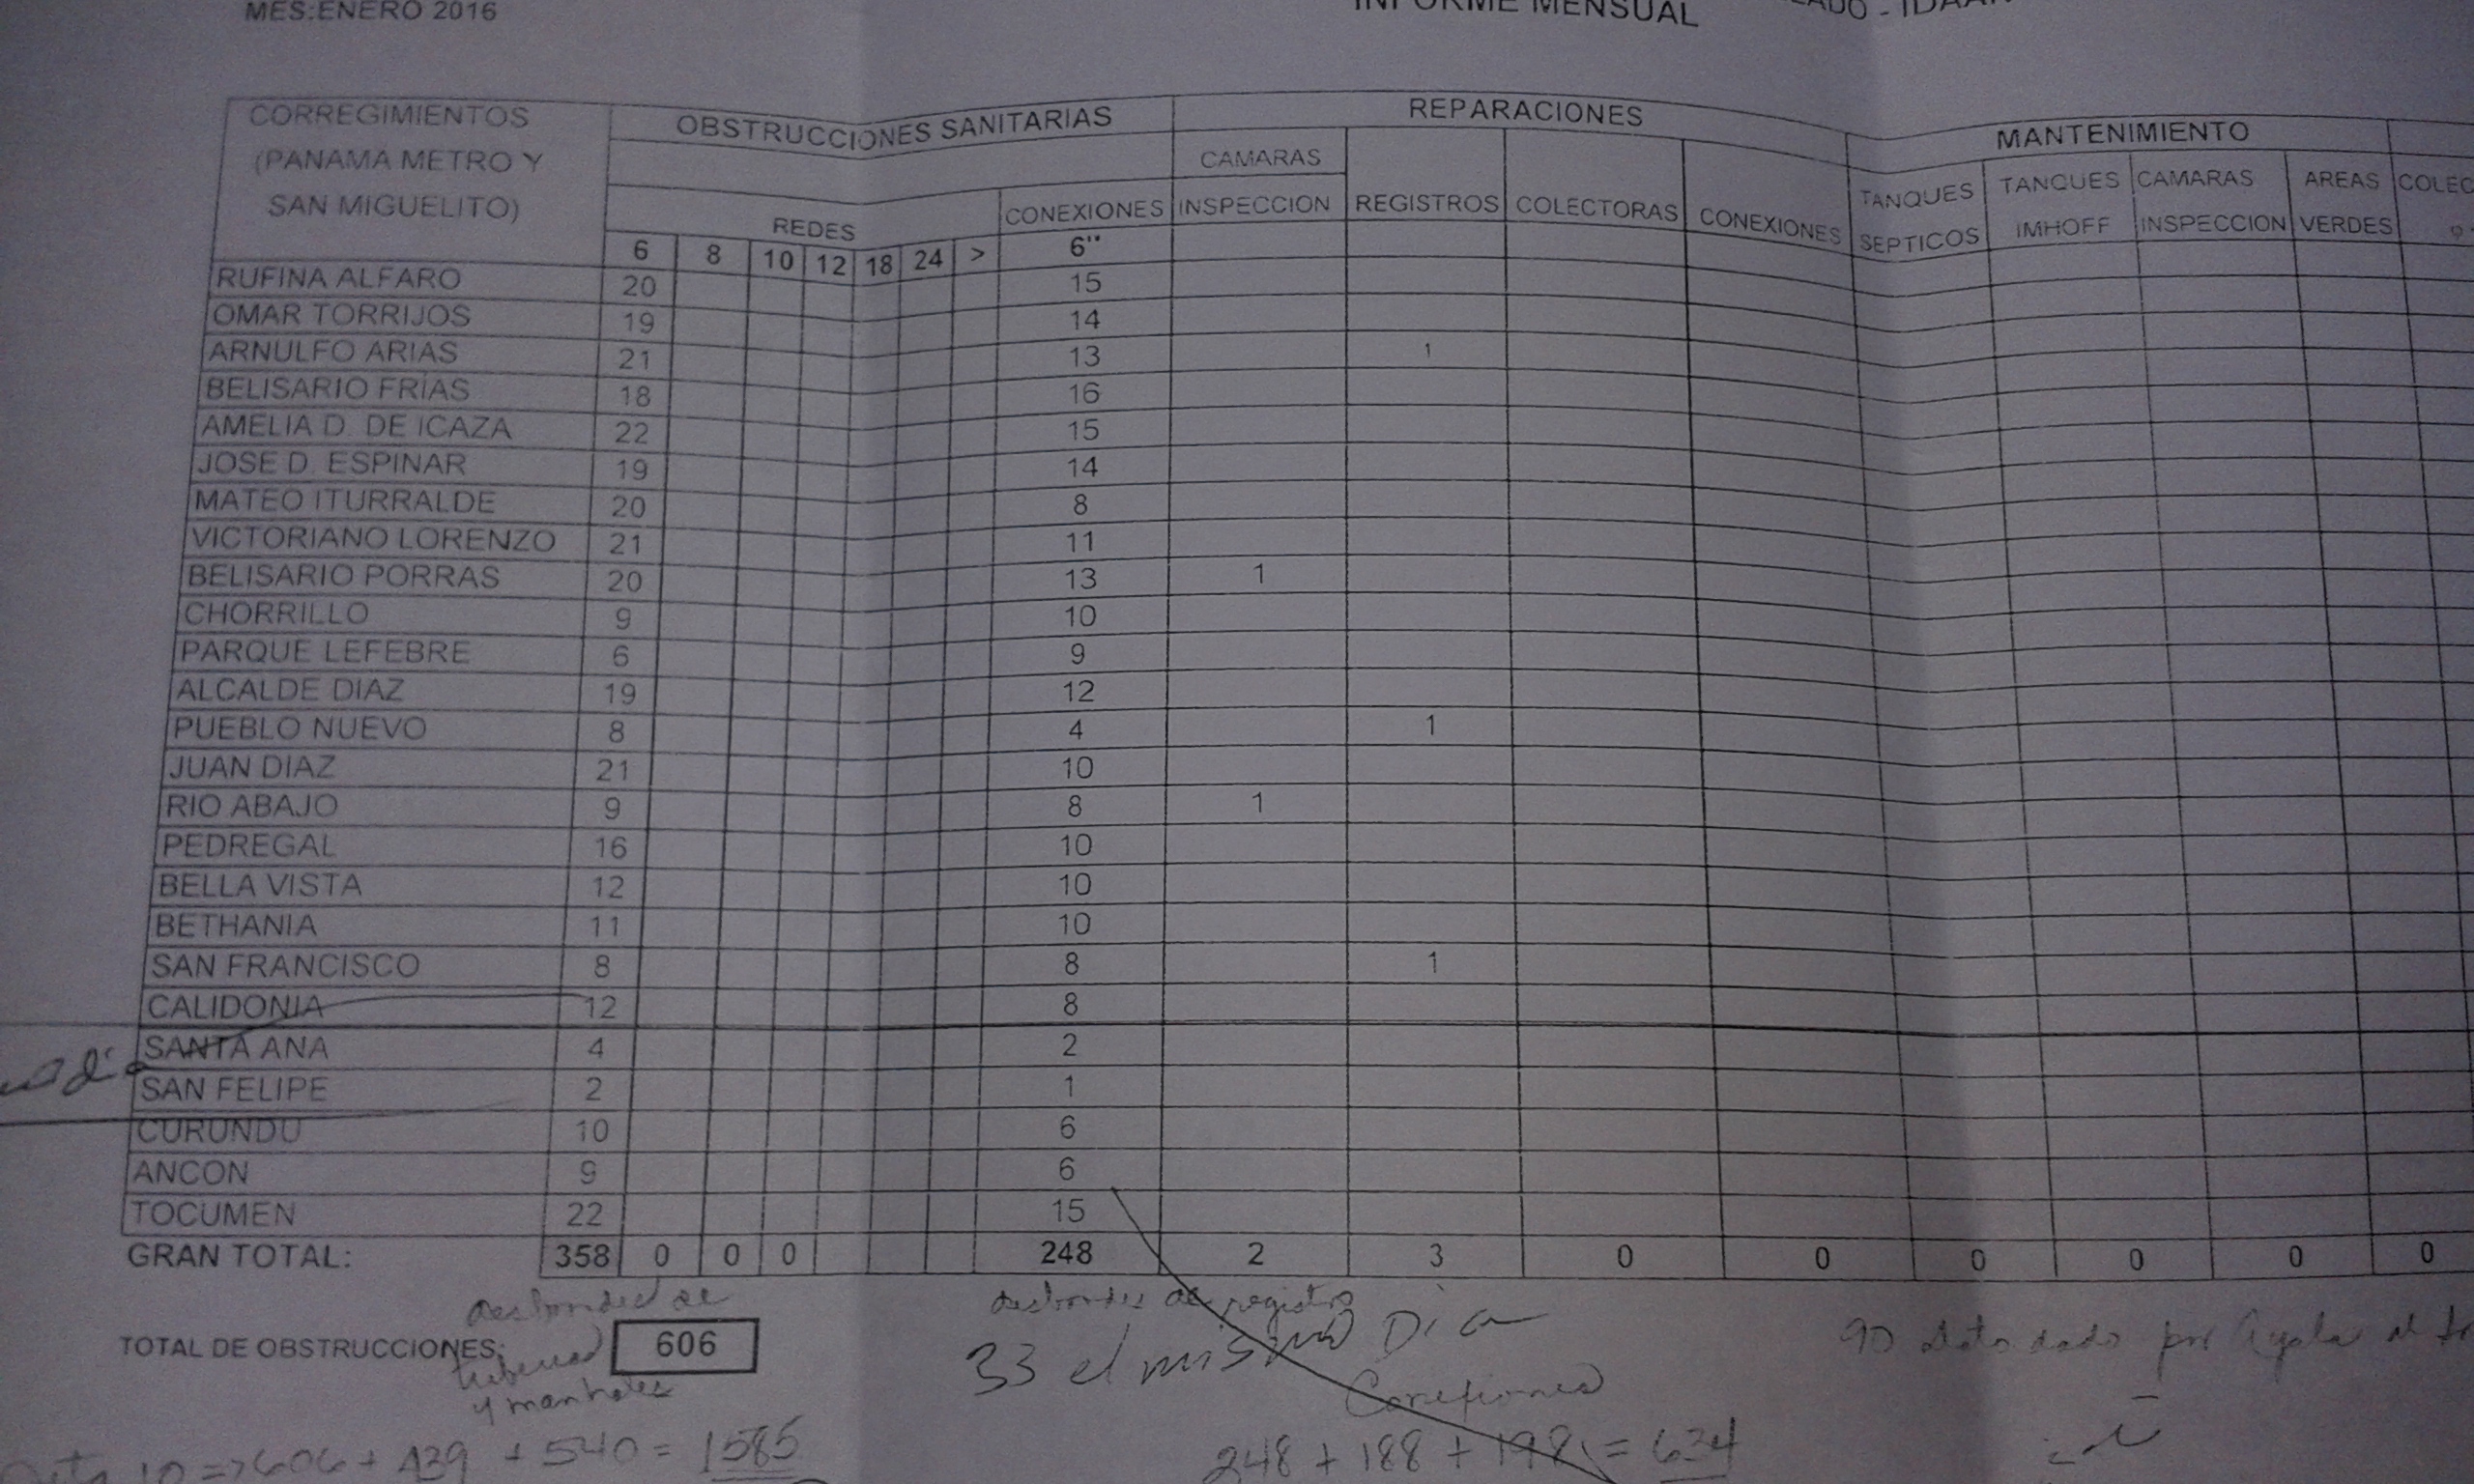 MES:ENERO 2016
INFORME MENSUAL
CORREGIMIENTOS
(PANAMA METRO Y
SAN MIGUELITO)
OBSTRUCCIONES SANITARIAS
REPARACIONES
MANTENIMIENTO
CAMARAS
REDES CONEXIONES INSPECCION REGISTROS COLECTORAS CONEXIONES
TANQUES SEPTICOS
TANQUES IMHOFF
CAMARAS INSPECCION
AREAS VERDES
COLEC
6 8 10 12 18 24 > 6"
RUFINA ALFARO 20 15
OMAR TORRIJOS 19 14
ARNULFO ARIAS 21 13 1
BELISARIO FRÍAS 18 16
AMELIA D. DE ICAZA 22 15
JOSE D. ESPINAR 19 14
MATEO ITURRALDE 20 8
VICTORIANO LORENZO 21 11
BELISARIO PORRAS 20 13 1
CHORRILLO 9 10
PARQUE LEFEBRE 6 9
ALCALDE DIAZ 19 12
PUEBLO NUEVO 8 4 1
JUAN DIAZ 21 10
RIO ABAJO 9 8 1
PEDREGAL 16 10
BELLA VISTA 12 10
BETHANIA 11 10
SAN FRANCISCO 8 8 1
CALIDONIA 12 8
SANTA ANA 4 2
SAN FELIPE 2 1
CURUNDU 10 6
ANCON 9 6
TOCUMEN 22 15
GRAN TOTAL: 358 0 0 0 248 2 3 0 0 0 0 0 0
de
de registro
TOTAL DE OBSTRUCCIONES: 606
33 el mismo Dia
90 dato dado por Ayala al
y manholes
Conexiones
606 + 439 + 540 = 1585
248 + 188 + 198 = 634